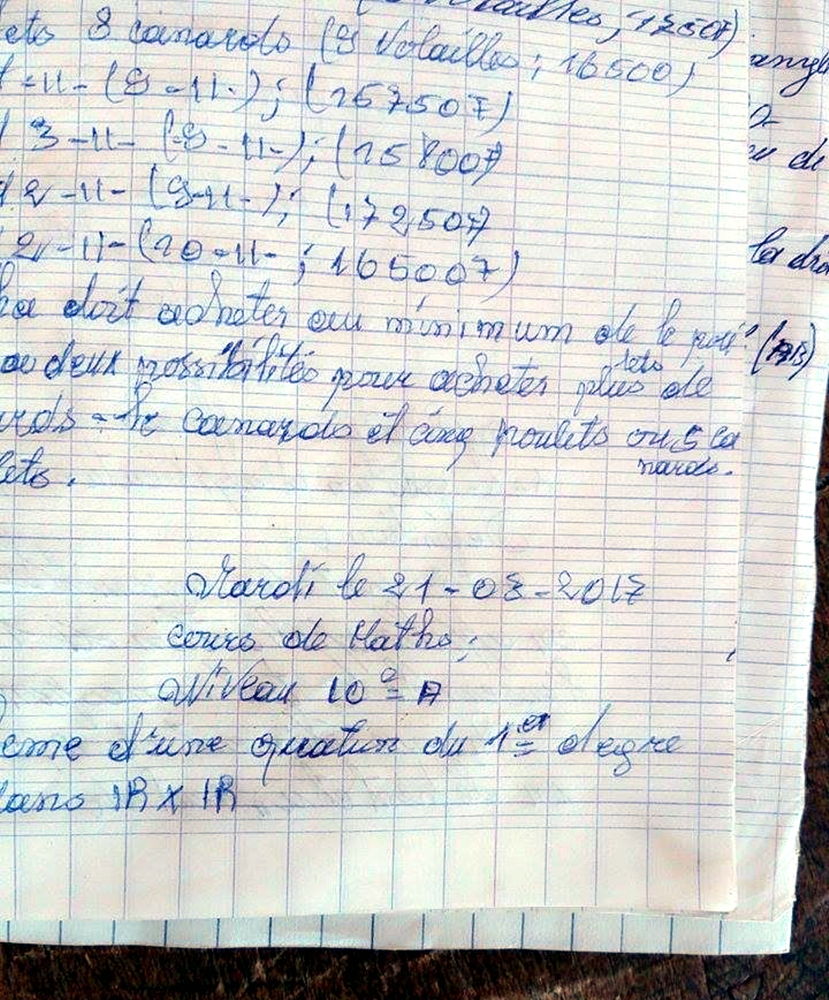 lets 8 canards (9 Volailles ; 16500)
-11- (9 -11-) ; (167507)
3 -11- (9 -11-) ; (158007)
2 -11- (9 -11-) ; (172507)
2 -11- (10 -11- ; 165007)
doit acheter au minimum de le pou
deux possibilités pour acheter plus de
lets
canards et cinq poulets ou 5 ca
nards.
lets.
Mardi le 21-03-2017
cours de Maths :
Niveau 10e A
eme d'une quation du 1er degre
dans IR x IR
la dro
(AB)